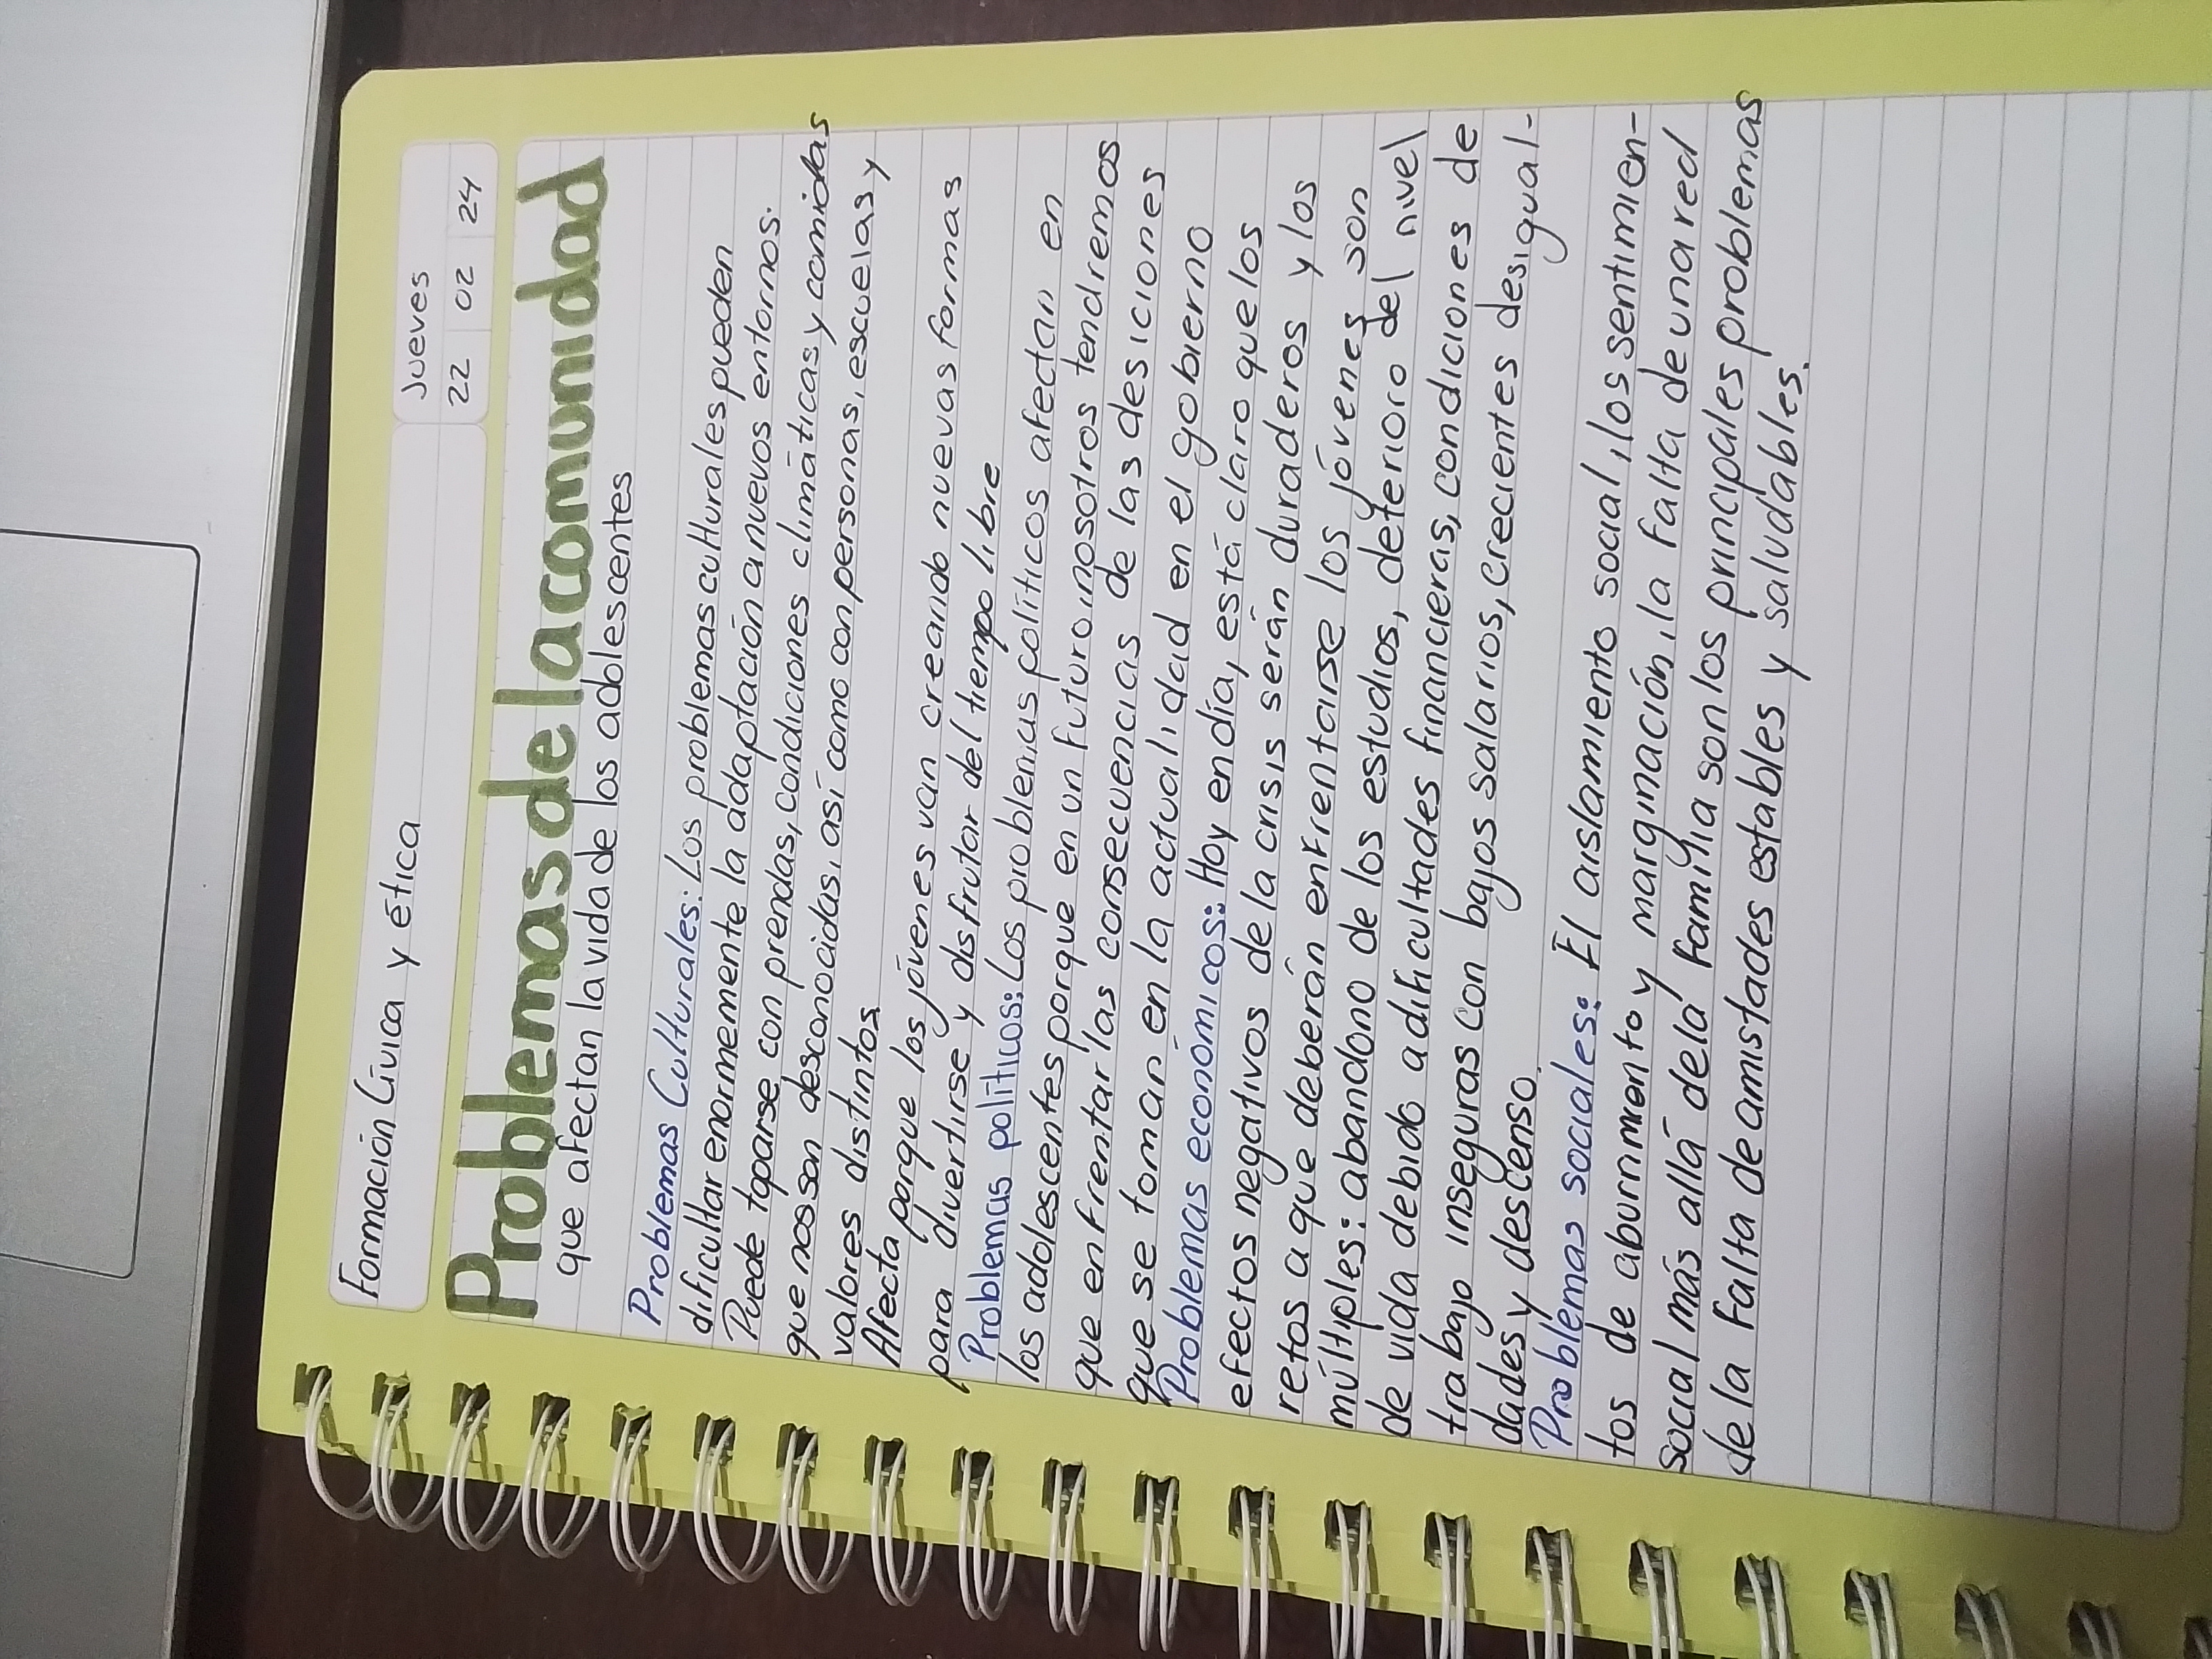 Formación Cívica y ética
Jueves
22 02 24
Problemas de la comunidad
que afectan la vida de los adolescentes
Problemas Culturales: Los problemas culturales pueden
dificultar enormemente la adaptación a nuevos entornos.
Puede toparse con prendas, condiciones climáticas y comidas
que nos son desconocidas, así como con personas, escuelas y
valores distintos.
Afecta porque los jóvenes van creando nuevas formas
para divertirse y disfrutar del tiempo libre
Problemas políticos: Los problemas políticos afectan en
los adolescentes porque en un futuro, nosotros tendremos
que enfrentar las consecuencias de las desiciones
que se toman en la actualidad en el gobierno
Problemas económicos: Hoy en día, está claro que los
efectos negativos de la crisis serán duraderos y los
retos a que deberán enfrentarse los jóvenes son
múltiples: abandono de los estudios, deterioro del nivel
de vida debido a dificultades financieras, condiciones de
trabajo inseguras con bajos salarios, crecientes desigual-
dades y descenso.
Problemas sociales: El aislamiento social, los sentimien-
tos de aburrimiento y marginación, la falta de una red
social más allá de la familia son los principales problemas
de la falta de amistades estables y saludables.